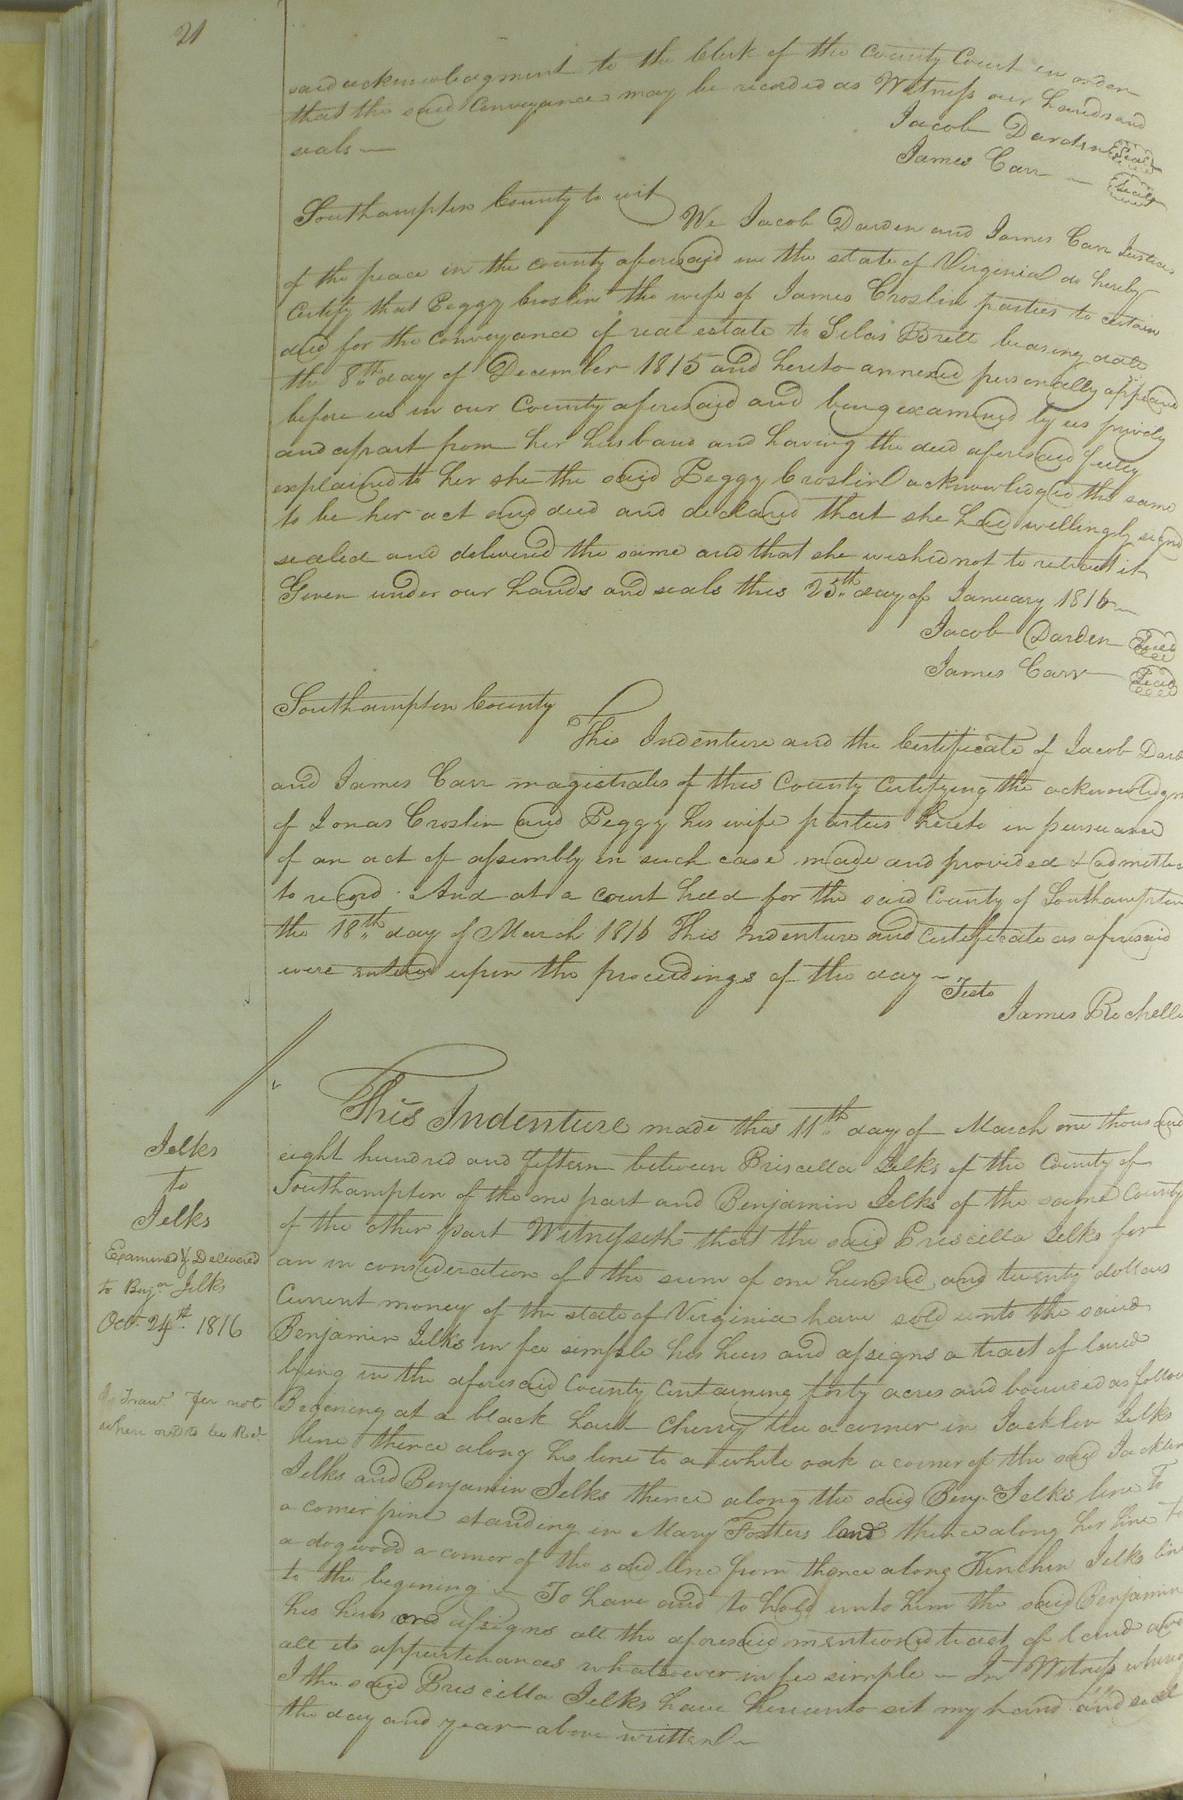 21
said acknowledgment to the Clerk of the County Court in order
that the said Conveyance may be recorded as Witness our hands and
seals —
Jacob Darden Seal
James Carr — Seal
Southampton County to wit
We Jacob Darden and James Carr Justices
of the peace in the county aforesaid in the state of Virginia do hereby
Certify that Peggy Croslin the wife of James Croslin parties to certain
deed for the Conveyance of real estate to Silas Brett bearing date
the 8th day of December 1815 and hereto annexed personally appeared
before us in our County aforesaid and being examined by us privily
and apart from her husband and having the deed aforesaid fully
explained to her she the said Peggy Croslin acknowledged the same
to be her act and deed and declared that she had willingly signd
sealed and delivered the same and that she wished not to retract it
Given under our hands and seals this 25th day of January 1816 —
Jacob Darden Seal
James Carr Seal
Southampton County
This Indenture and the Certificate of Jacob Dard
and James Carr magistrates of this County Certifying the acknowledgm
of Jonas Croslin and Peggy his wife parties hereto in pursuance
of an act of assembly in such case made and provided & admitted
to record. And at a court held for the said County of Southampton
the 18th day of March 1816 This Indenture and Certificate as aforesaid
were entered upon the proceedings of the day —
Teste
James Rochelle
This Indenture made this 11th day of March one thousand
eight hundred and fifteen between Priscilla Jelks of the County of
Southampton of the one part and Benjamin Jelks of the same County
of the other part Witnesseth that the said Priscilla Jelks for
an in consideration of the sum of one hundred and twenty dollars
Current money of the state of Virginia have sold unto the said
Benjamin Jelks in fee simple his heirs and assigns a tract of land
lying in the aforesaid County Containing forty acres and bounded as follow
Begening at a black hart Cherry tree a corner in Jacklin Jelks
line thence along his line to a white oak a corner of the said Jacklin
Jelks and Benjamin Jelks thence along the said Benj. Jelks line To
a corner pine standing in Mary Fosters land thence along her line to
a dogwood a corner of the said line from thence along Kinchen Jelks line
to the begening — To have and to hold unto him the said Benjamin
his heirs and assigns all the aforesaid mentioned tract of land and
all its appurtenances whatsoever in fee simple — In Witness where
I the said Priscilla Jelks have hereunto set my hand and seal
the day and year above written —
Jelks
to
Jelks
Examined & Delivered
to Benjn Jelks
Oct. 24th 1816
Fer not
where